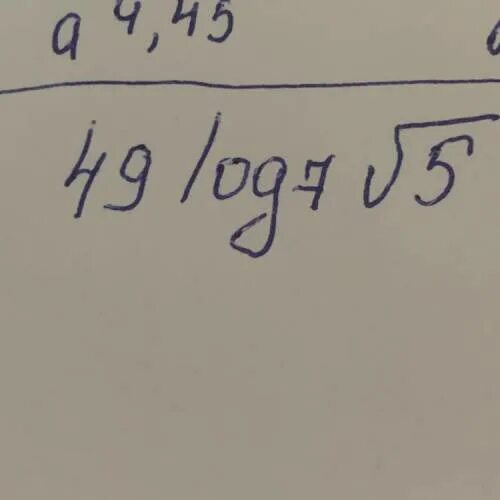 a^4,45
49 log7 √5